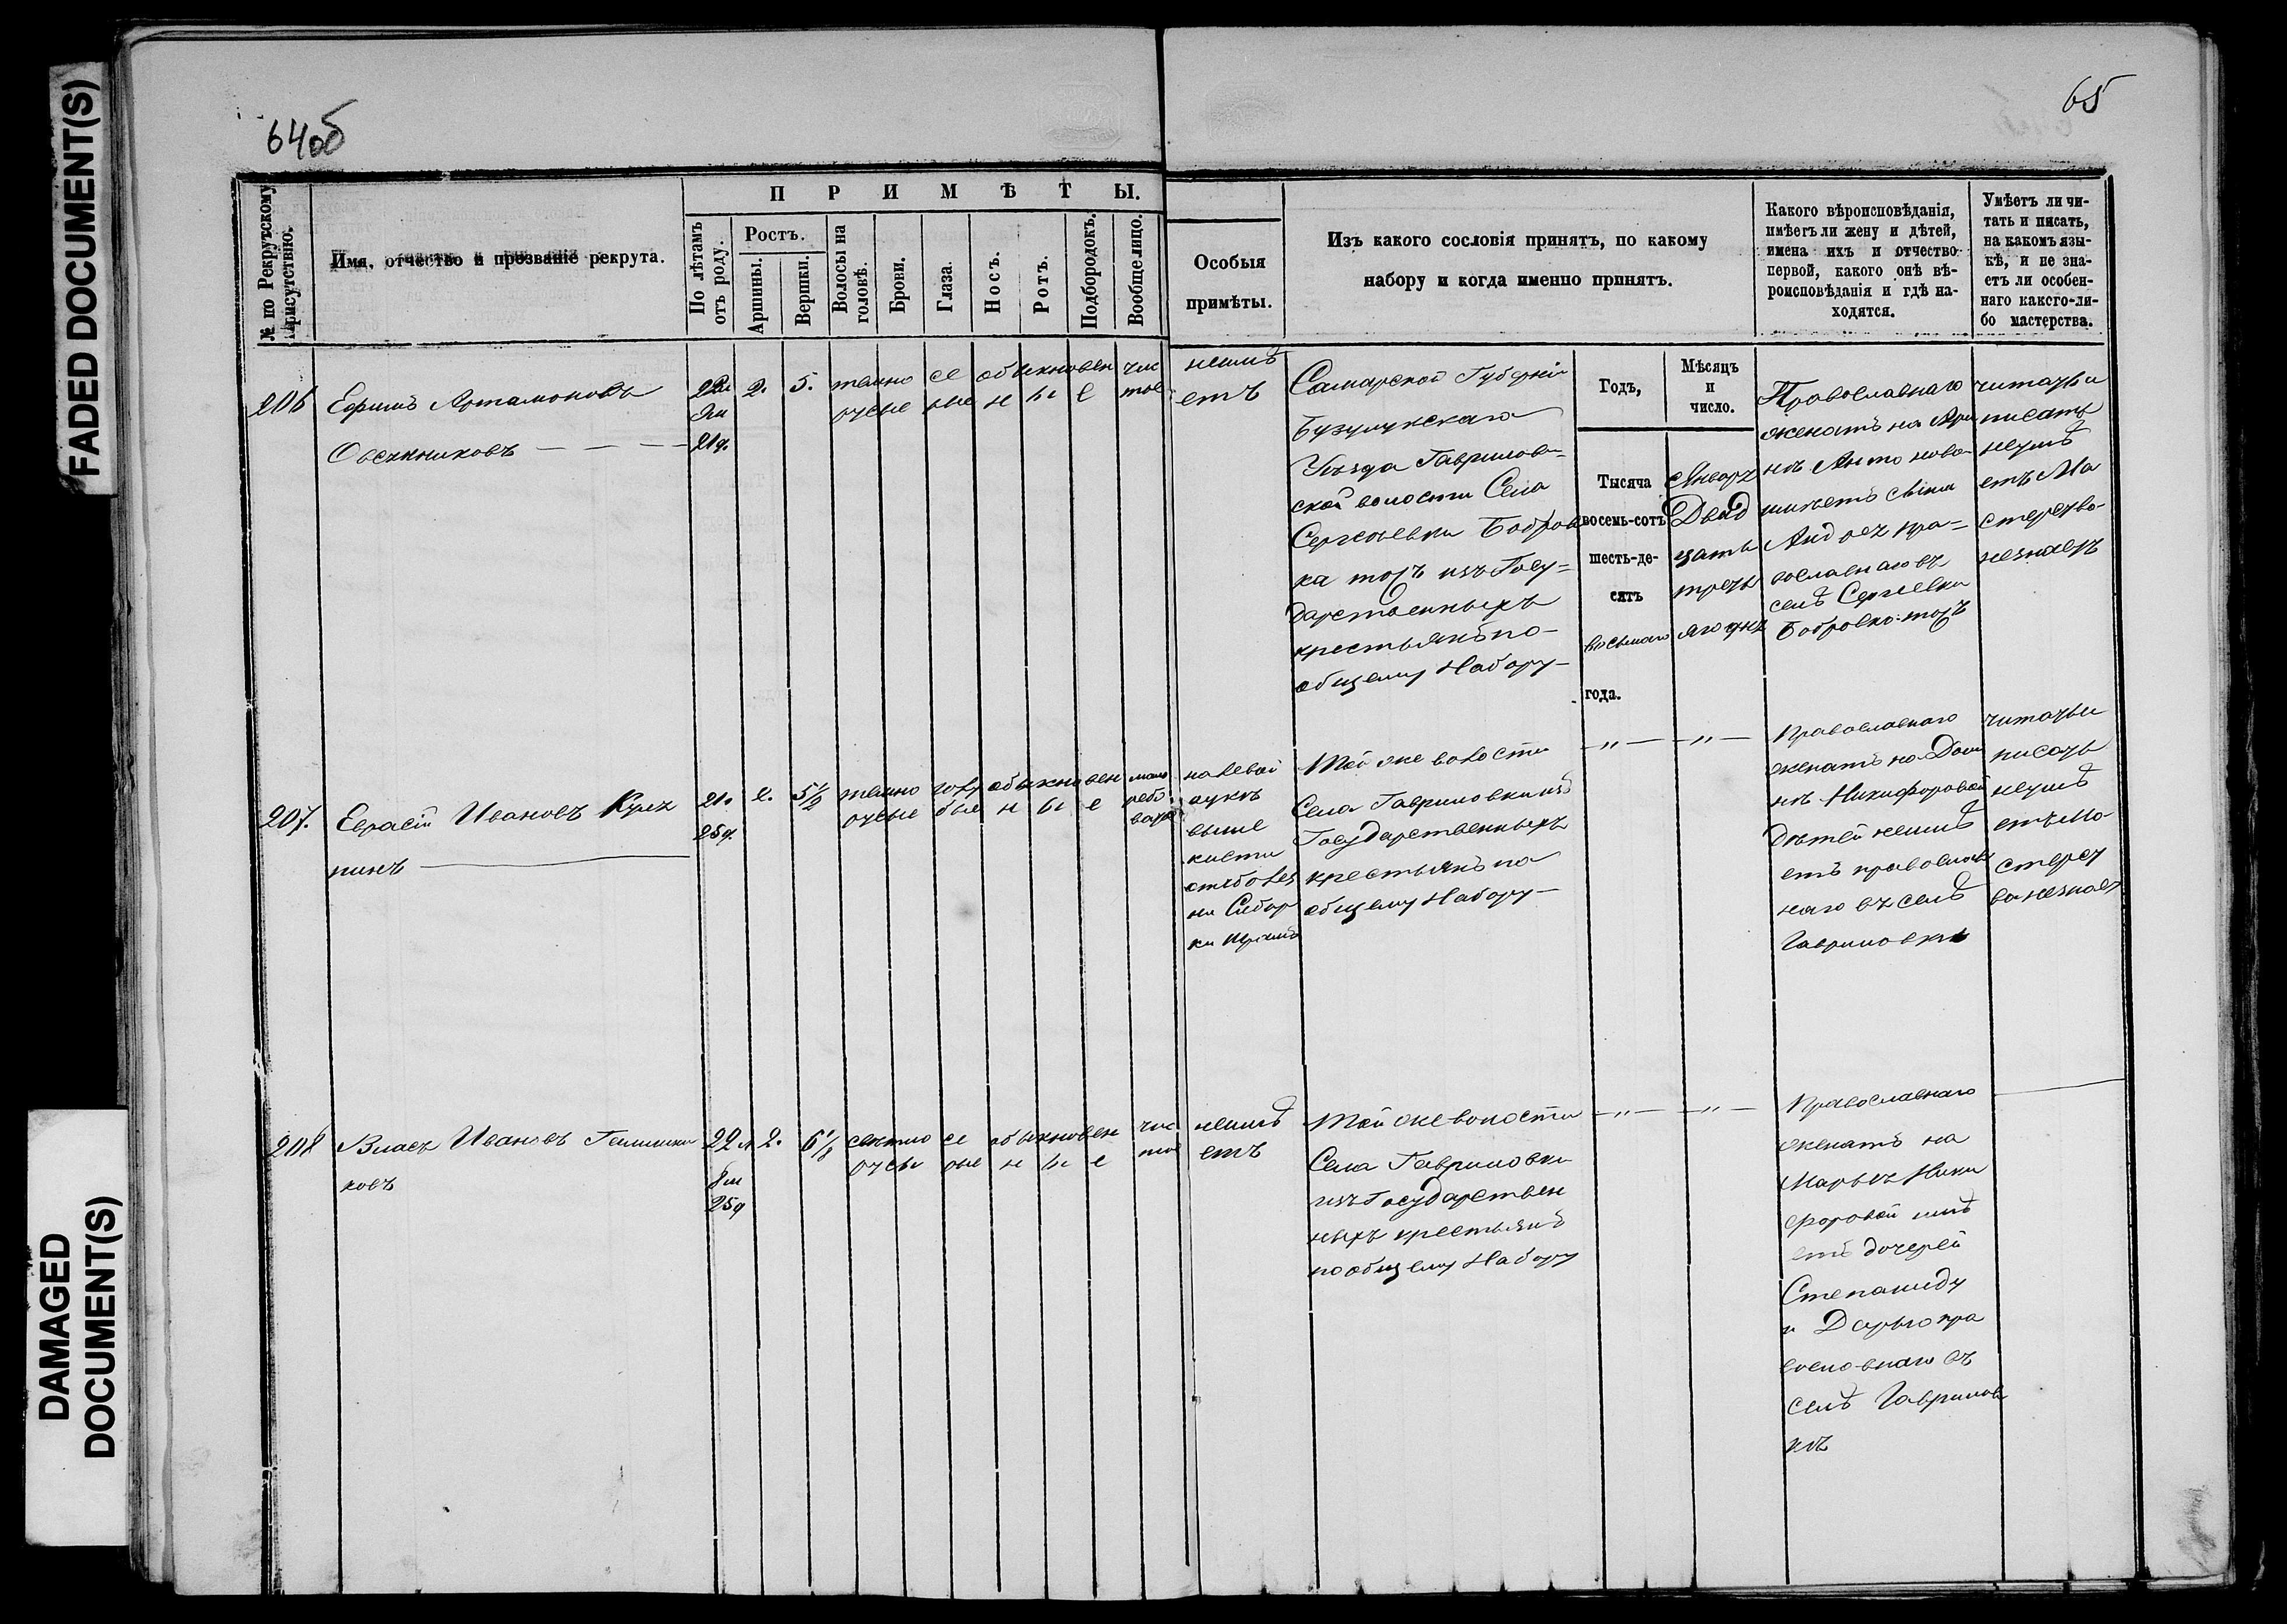 FADED DOCUMENT(S)
DAMAGED
DOCUMENT(S)
64об
65
№ по Рекрутскому
присутствію.
Имя, отчество и прозваніе рекрута.
ПРИМѢТЫ.
По лѣтамъ
отъ роду.
Ростъ.
Аршины.
Вершки.
Волосы на
головѣ.
Брови.
Глаза.
Носъ.
Ротъ.
Подбородокъ.
Вообще лицо.
Особыя
примѣты.
Изъ какого сословія принятъ, по какому
набору и когда именно принятъ.
Какого вѣроисповѣданія,
имѣетъ ли жену и дѣтей,
имена ихъ и отчество
первой, какого онѣ вѣ-
роисповѣданія и гдѣ на-
ходятся.
Умѣетъ ли чи-
тать и писать,
на какомъ язы-
кѣ, и не зна-
етъ ли особен-
наго какого-ли-
бо мастерства.
206
Ефимъ Артамоновъ
Овсянниковъ
21д.
2.
5.
темно
русые
се
рые
обыкновен
ные
чис
тое
неимѣ
етъ
Самарской Губерніи
Бузулукскаго
Уѣзда Гавриловс=
ской волости Села
Сергеевки Бобров
ка тожъ изъ Госу=
дарственныхъ
крестьянъ по-
общему Набору-
Годъ,
Тысяча
восемь-сотъ
шесть-де-
сятъ
восьмаго
года.
Мѣсяцъ
и
число.
Января
Двад
цать
треть
яго дня
Православнаго
женатъ на Ири
нѣ Антоновой
имѣетъ сына
Андрея пра=
вославнаго въ
селѣ Сергеевки
Бобровка тожъ
читать и
писать
неумѣ
етъ Ма
стерства
незнаетъ
207.
Еврасій Ивановъ Куле
пинъ
21.
25д.
2.
5½
темно
русые
голу
бые
обыкновен
ные
мало
рябо
вато
на левой
рукѣ
выше
кисти
отъ болез
ни Сибир
ки шрамъ
Той же волости
Села Гавриловки изъ
Государственныхъ
крестьянъ по
общему Набору-
— " —
— " —
Православнаго
женатъ на Дом
нѣ Никифоровой
дѣтей неимѣ
етъ православ
наго въ селѣ
Гавриловкѣ
читать и
писать
неумѣ
етъ Ма-
стерст
ва незнает
208
Власъ Ивановъ Голишни
ковъ
22 л
8 м
25д
2.
6⅛
светло
русы
се
рые
обыкновен
ные
чис
тое
неимѣ
етъ
Той же волости
Села Гавриловки
изъ Государствен
ныхъ крестьянъ
по общему Набору
— " —
— " —
Православнаго
женатъ на
Марье Ники
форовой имѣ
етъ дочерей
Степаниду
и Дарью пра
вославнаго въ
селѣ Гаврилов
кѣ